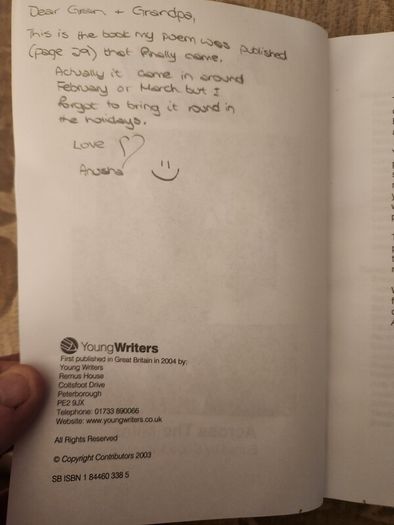 Dear Gran + Grandpa,
This is the book my poem was published
(page 29) that finally came.
Actually it came in around
February or March but I
forgot to bring it round in
the holidays.
Love
Anusha
YoungWriters
First published in Great Britain in 2004 by:
Young Writers
Remus House
Coltsfoot Drive
Peterborough
PE2 9JX
Telephone: 01733 890066
Website: www.youngwriters.co.uk
All Rights Reserved
© Copyright Contributors 2003
SB ISBN 1 84460 338 5